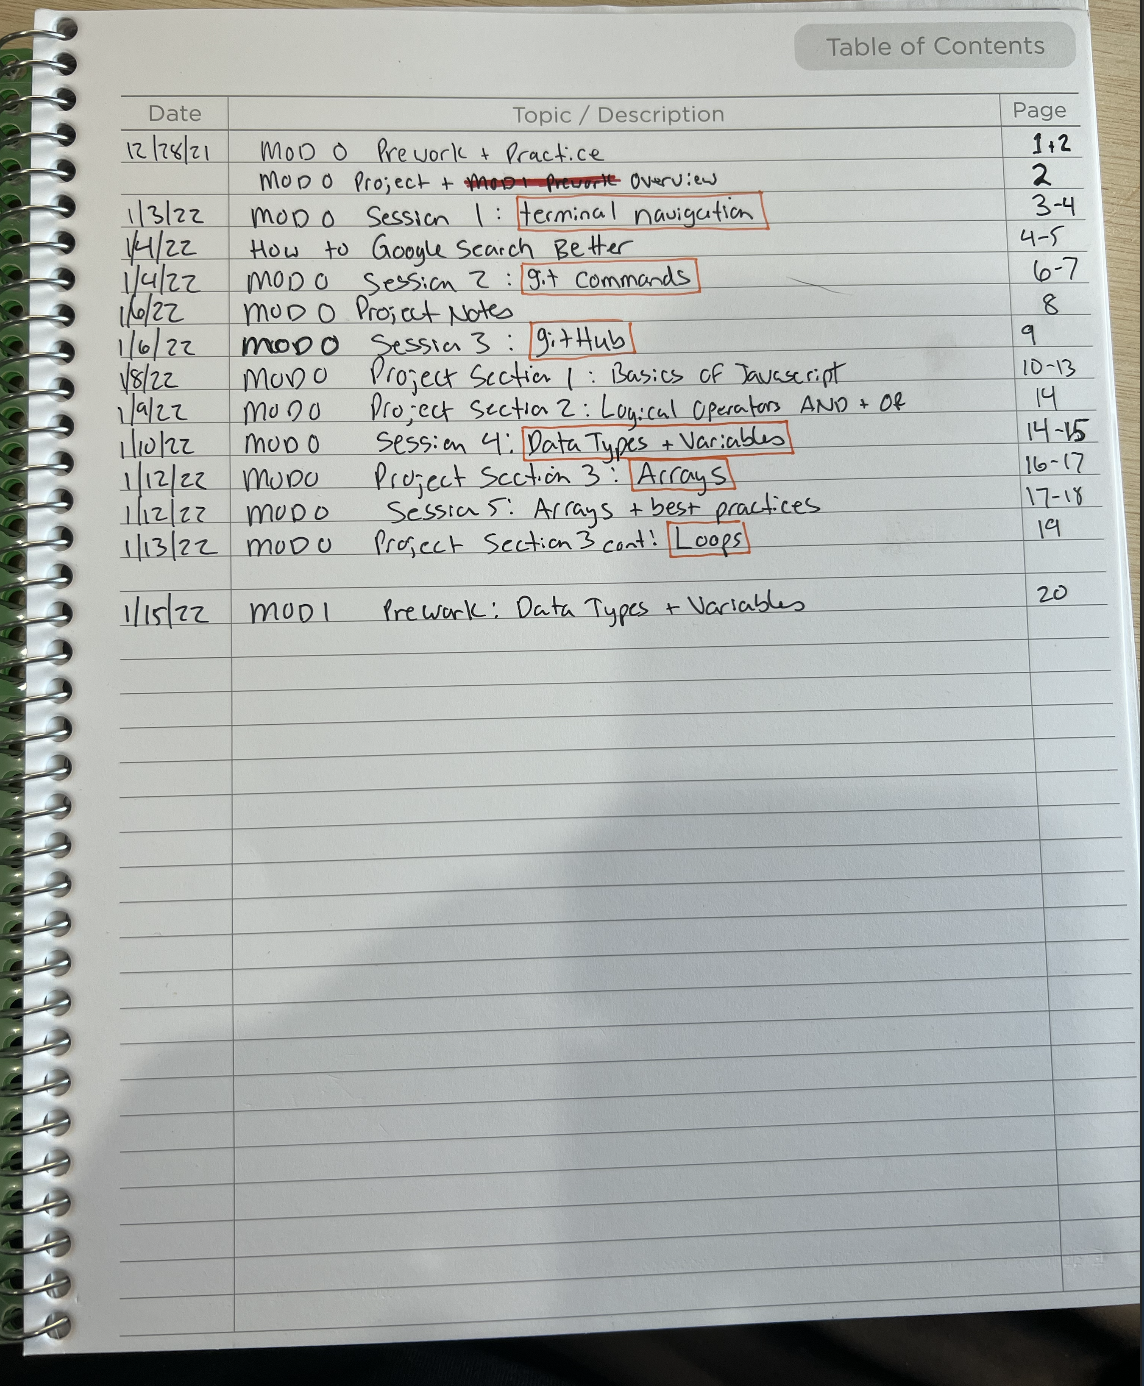 Table of Contents
Date Topic / Description Page
12/28/21 MOD 0 Prework + Practice 1+2
MOD 0 Project + MOD 1 Prework Overview 2
1/3/22 MOD 0 Session 1: terminal navigation 3-4
1/4/22 How to Google Search Better 4-5
1/4/22 MOD 0 Session 2: git Commands 6-7
1/6/22 MOD 0 Project Notes 8
1/6/22 MOD 0 Session 3: gitHub 9
1/8/22 MOD 0 Project Section 1: Basics of Javascript 10-13
1/9/22 MOD 0 Project Section 2: Logical Operators AND + OR 14
1/10/22 MOD 0 Session 4: Data Types + Variables 14-15
1/12/22 MOD 0 Project Section 3: Arrays 16-17
1/12/22 MOD 0 Session 5: Arrays + best practices 17-18
1/13/22 MOD 0 Project Section 3 cont: Loops 19
1/15/22 MOD 1 Prework: Data Types + Variables 20